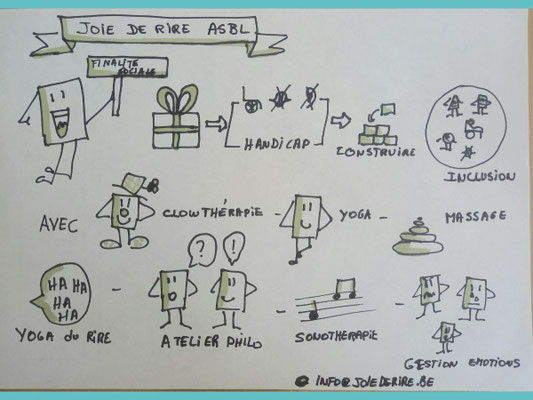 JOIE DE RIRE ASBL
FINALITE
SOCIALE
HANDICAP
CONSTRUIRE
INCLUSION
AVEC
CLOWTHÉRAPIE - YOGA - MASSAGE
? !
HA HA
HA
HA
YOGA DU RIRE - ATELIER PHILO - SONOTHERAPIE - GESTION EMOTIONS
INFO@JOIEDERIRE.BE